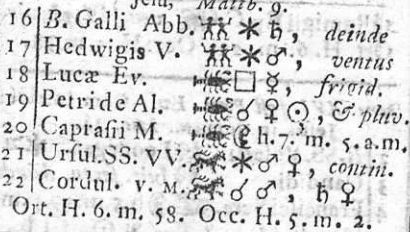 jelu, Matth. 9.
16 B. Galli Abb. ♊ ⚹ ♄, deinde
17 Hedwigis V. ♊ ⚹ ♂, ventus
18 Lucæ Ev. □ ☿, frigid.
19 Petri de Al. ☌ ♀ ☉, & pluv.
20 Caprasii M. h. 7. m. 5. a.m.
21 Ursul. SS. VV. ⚹ ♂ ♀, contin.
22 Cordul. V. M. ☌ ♂, ♄ ♀
Ort. H. 6. m. 58. Occ. H. 5. m. 2.